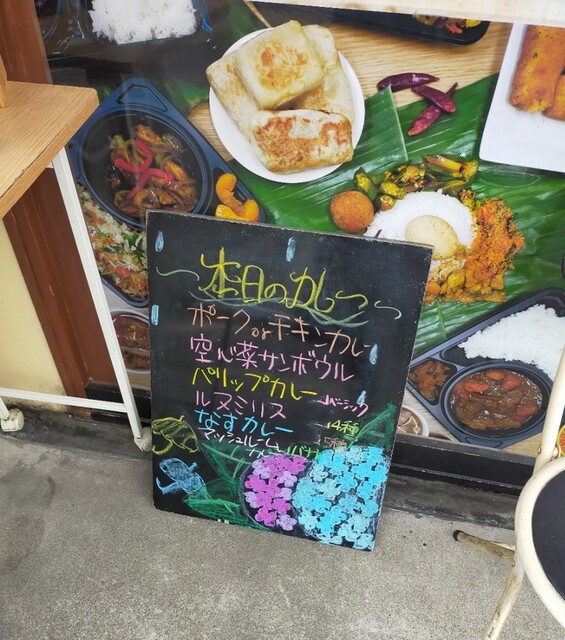 本日のカレー
ポーク or チキンカレー
空心菜サンボウル
パリップカレー
ルヌミリス
ベーシック
なすカレー
4種
マッシュルーム
5種